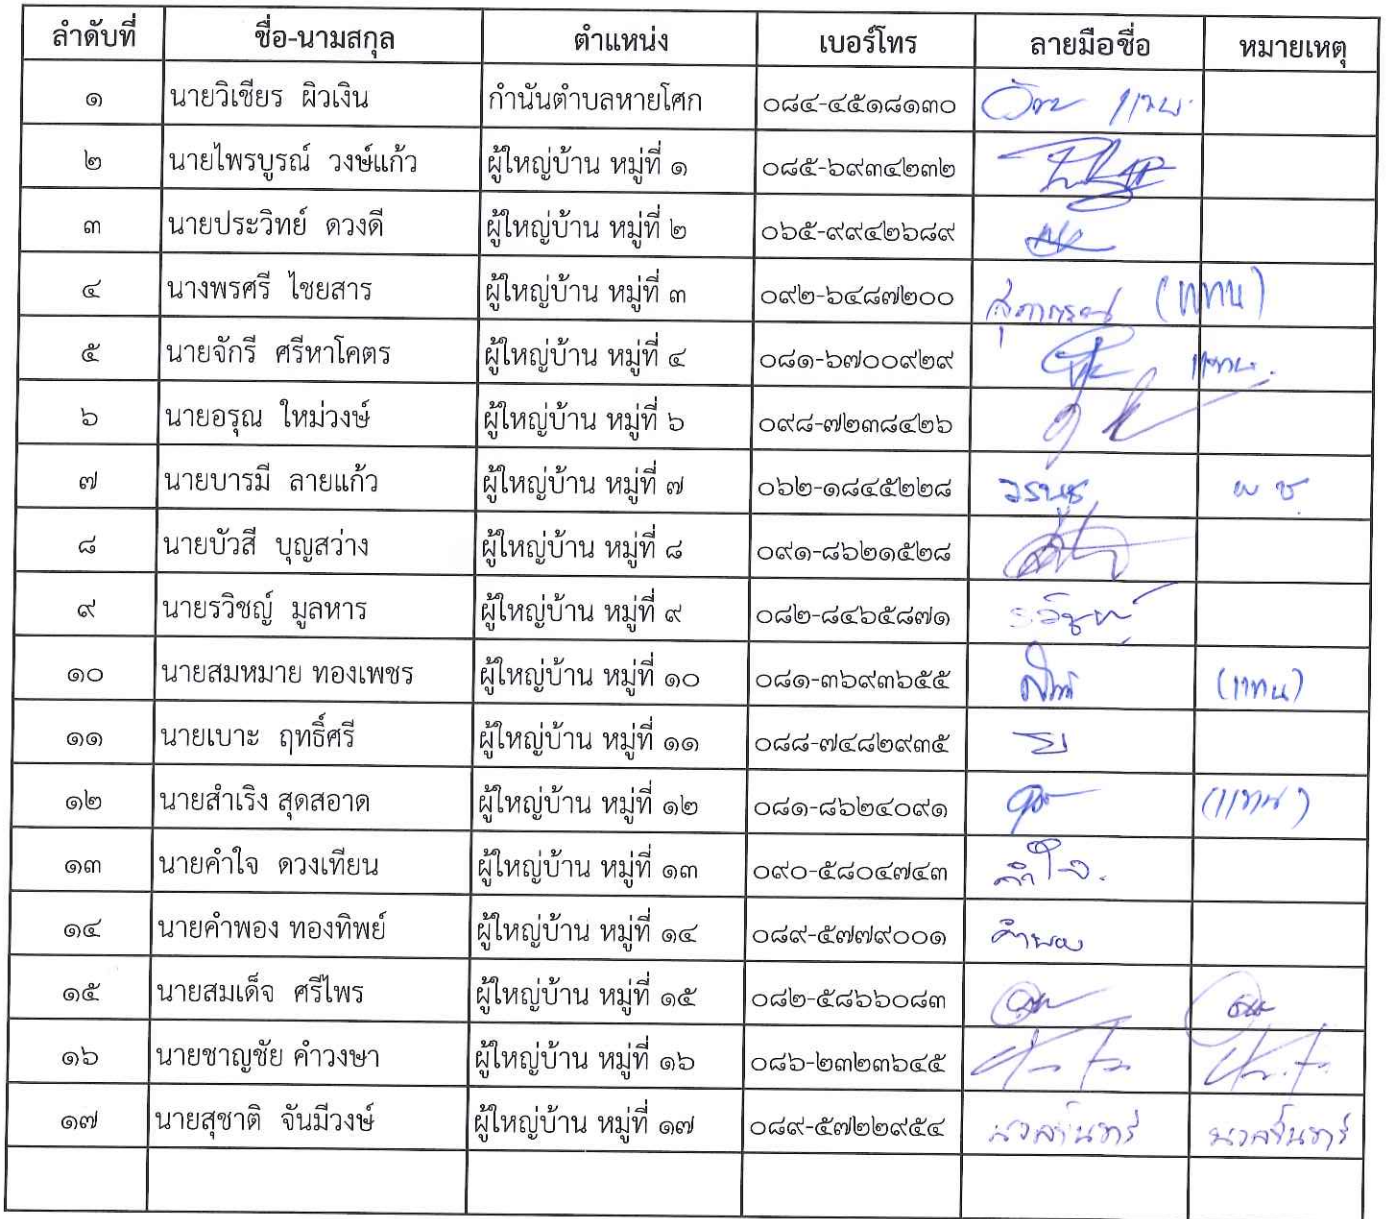 ลำดับที่ ชื่อ-นามสกุล ตำแหน่ง เบอร์โทร ลายมือชื่อ หมายเหตุ
๑ นายวิเชียร ผิวเงิน กำนันตำบลหายโศก ๐๘๔-๔๕๑๘๑๓๐ แทน
๒ นายไพรบูรณ์ วงษ์แก้ว ผู้ใหญ่บ้าน หมู่ที่ ๑ ๐๘๕-๖๙๓๔๒๓๒
๓ นายประวิทย์ ดวงดี ผู้ใหญ่บ้าน หมู่ที่ ๒ ๐๖๕-๙๙๔๒๖๘๙
๔ นางพรศรี ไชยสาร ผู้ใหญ่บ้าน หมู่ที่ ๓ ๐๙๒-๖๔๘๗๒๐๐ (แทน)
๕ นายจักรี ศรีหาโคตร ผู้ใหญ่บ้าน หมู่ที่ ๔ ๐๘๑-๖๗๐๐๙๒๙ แทน.
๖ นายอรุณ ใหม่วงษ์ ผู้ใหญ่บ้าน หมู่ที่ ๖ ๐๙๘-๗๒๓๘๔๒๖
๗ นายบารมี ลายแก้ว ผู้ใหญ่บ้าน หมู่ที่ ๗ ๐๖๒-๑๘๔๕๒๒๘ วรนุช ผช.
๘ นายบัวสี บุญสว่าง ผู้ใหญ่บ้าน หมู่ที่ ๘ ๐๙๑-๘๖๒๑๕๒๘
๙ นายรวิชญ์ มูลหาร ผู้ใหญ่บ้าน หมู่ที่ ๙ ๐๘๒-๘๔๖๕๘๗๑
๑๐ นายสมหมาย ทองเพชร ผู้ใหญ่บ้าน หมู่ที่ ๑๐ ๐๘๑-๓๖๙๓๖๕๕ (แทน)
๑๑ นายเบาะ ฤทธิ์ศรี ผู้ใหญ่บ้าน หมู่ที่ ๑๑ ๐๘๘-๗๔๘๒๙๓๕
๑๒ นายสำเริง สุดสอาด ผู้ใหญ่บ้าน หมู่ที่ ๑๒ ๐๘๑-๘๖๒๔๐๙๑ (แทน)
๑๓ นายคำใจ ดวงเทียน ผู้ใหญ่บ้าน หมู่ที่ ๑๓ ๐๙๐-๕๘๐๔๗๔๓ คำใจ.
๑๔ นายคำพอง ทองทิพย์ ผู้ใหญ่บ้าน หมู่ที่ ๑๔ ๐๘๙-๕๗๗๙๐๐๑ คำพอง
๑๕ นายสมเด็จ ศรีไพร ผู้ใหญ่บ้าน หมู่ที่ ๑๕ ๐๘๒-๕๘๖๖๐๘๓
๑๖ นายชาญชัย คำวงษา ผู้ใหญ่บ้าน หมู่ที่ ๑๖ ๐๘๖-๒๓๒๓๖๔๕
๑๗ นายสุชาติ จันมีวงษ์ ผู้ใหญ่บ้าน หมู่ที่ ๑๗ ๐๘๙-๕๗๒๒๙๕๔ นวลจันทร์ นวลจันทร์